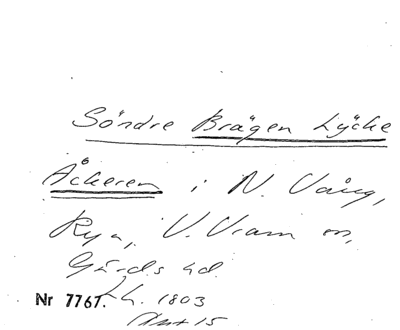 Söndre Brägen Lÿcke
Åckeren i N. Vång,
Rya, V. Vram sn,
Gärds hd.
Nr 7767. Lh. 1803
Akt 15